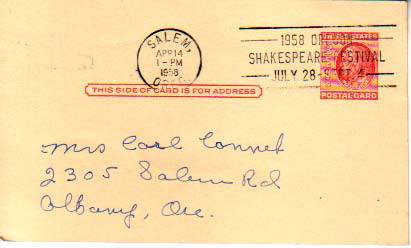 SALEM,
APR 14
1 - PM
1958
OREG.
1958 OREGON
SHAKESPEARE FESTIVAL
JULY 28-
UNITED STATES
POSTAL CARD
THIS SIDE OF CARD IS FOR ADDRESS
Mrs Carl Connet
2305 Salem Rd
Albany, Ore.